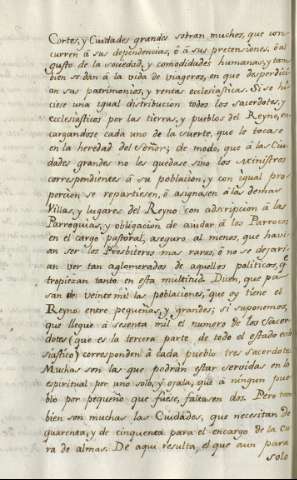 Cortes, y Ciudades grandes sobran muchos, que con
curren á sus dependencias, ó á sus pretensiones, ó al
gusto de la sociedad, y comodidades humanas, y tam
bien se dán á la vida de viageros, en que desperdici
an sus patrimonios, y rentas ecclesiasticas. Si se hi
ciese una igual distribucion todos los sacerdotes, y
ecclesiasticos por las tierras, y pueblos del Reyno, en
cargandose cada uno de la suerte, que le tocase
en la heredad del Señor; de modo, que á las Ciu
dades grandes no les quedase sino los Ministros
correspondientes á su poblacion, y con igual pro
porcion se repartiesen, ó asignasen á las demas
Villas, y lugares del Reyno con adscripcion á las
Parroquias, y obligacion de aiudar á los Parrocos
en el cargo pastoral, aseguro al menos, que havi
an ser los Presbiteros mas raros, ó no se dejari
an ver tan aglomerados de aquellos politicos, qe
tropiezan tanto en esta multitud. Dicen, que pa
san de veinte mil las poblaciones, que oy tiene el
Reyno entre pequeñas, y grandes; si suponemos,
que llegue á sesenta mil el numero de los Sacer
dotes (que es la tercera parte de todo el estado eccle
siastico) corresponden á cada pueblo tres sacerdotes
Muchas son las que podrán estar servidas en lo
espiritual por uno solo, y ojala, que á ningun pue
blo por pequeño que fuese, faltasen dos. Pero tam
bien son muchas las Ciudades, que necesitan de
quarenta, y de cinquenta para el encargo de la Cu
ra de almas. De aqui resulta, el que aun para
solo